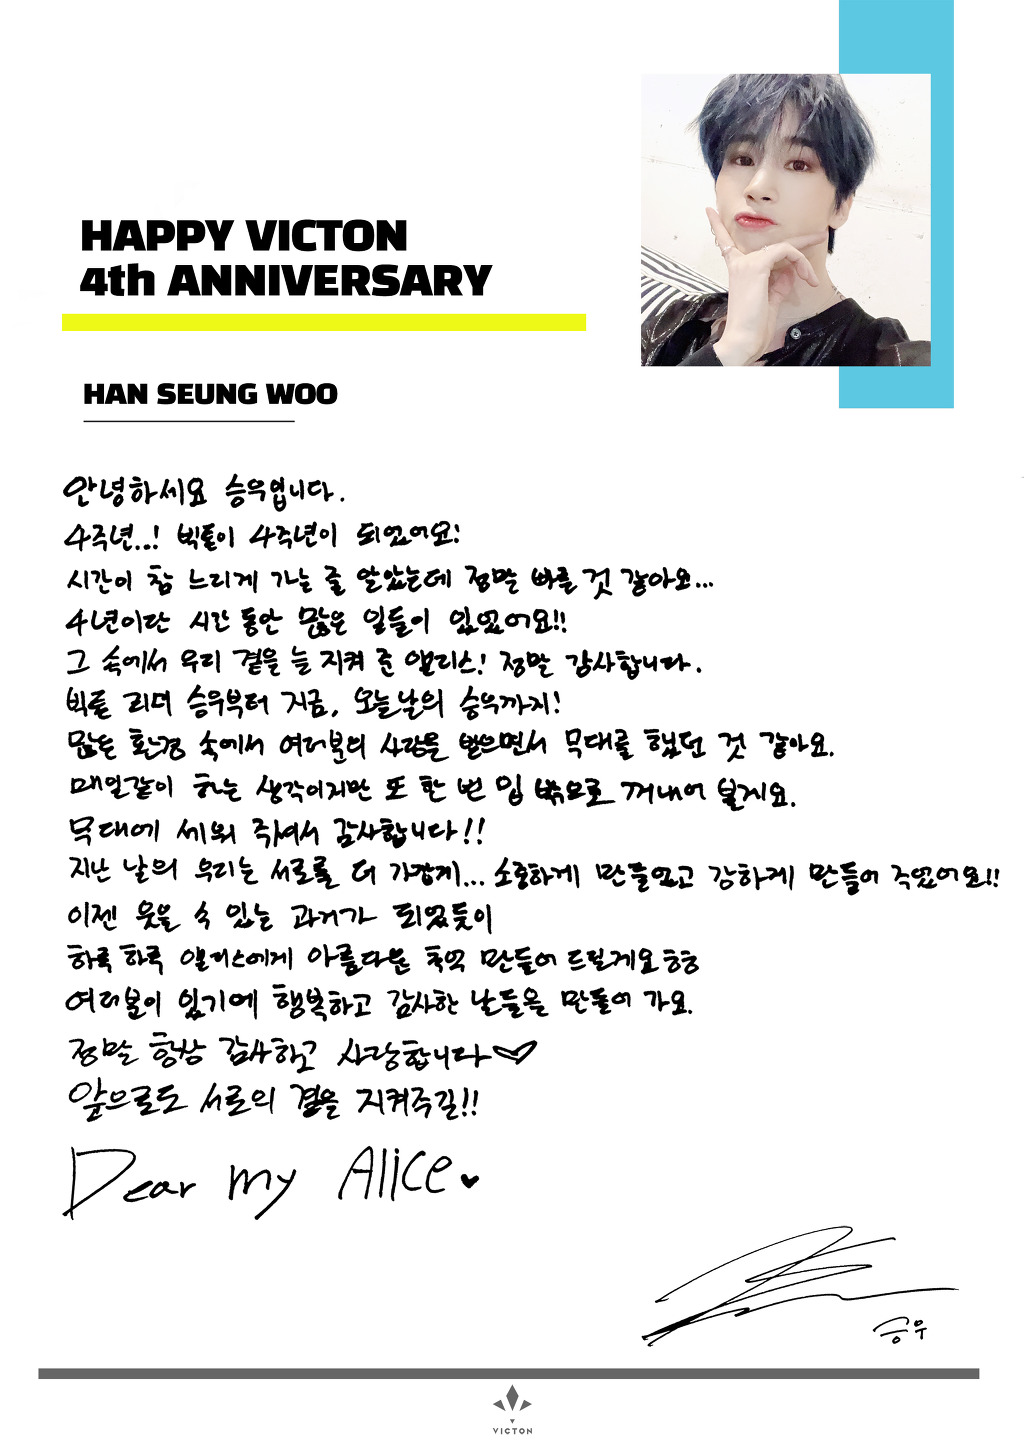 HAPPY VICTON
4th ANNIVERSARY
HAN SEUNG WOO
안녕하세요 승우입니다.
4주년..! 빅톤이 4주년이 되었어요!
시간이 참 느리게 가는 줄 알았는데 정말 빠른 것 같아요...
4년이란 시간 동안 많은 일들이 있었어요!!
그 속에서 우리 곁을 늘 지켜 준 앨리스! 정말 감사합니다.
빅톤 리더 승우부터 지금, 오늘날의 승우까지!
많은 환경 속에서 여러분의 사랑을 받으면서 무대를 했던 것 같아요.
매일같이 하는 생각이지만 또 한 번 입 밖으로 꺼내어 볼게요.
무대에 세워 주셔서 감사합니다!!
지난 날의 우리는 서로를 더 가깝게... 소중하게 만들었고 강하게 만들어 주었어요!!
이젠 웃을 수 있는 과거가 되었듯이
하루 하루 앨리스에게 아름다운 추억 만들어 드릴게요 ㅎㅎ
여러분이 있기에 행복하고 감사한 날들을 만들어 가요.
정말 항상 감사하고 사랑합니다♡
앞으로도 서로의 곁을 지켜주길!!
Dear my Alice♥
승우
VICTON